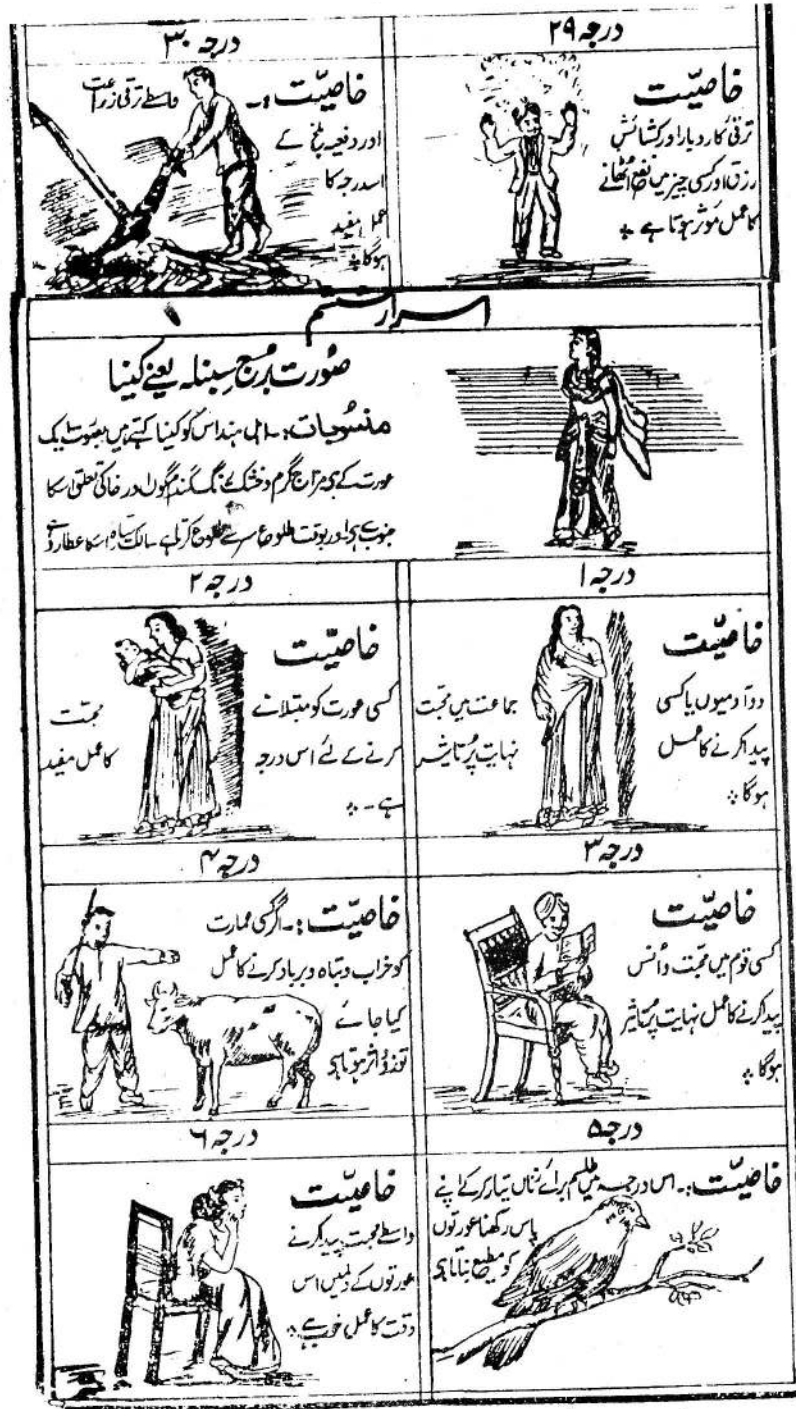 درجہ ۲۹
خاصیّت
ترقی کاروبار اور کشائش
رزق اور کسی چیز میں نفع اٹھانے
کا عمل مؤثر ہوتا ہے ÷
درجہ ۳۰
خاصیّت :۔ واسطے ترقی زراعت
اور دفعیہ بلخ کے
اسدرجہ کا
عمل مفید
ہوگا ÷
اسرار ششم
صورت برج سنبلہ یعنے کنیا
منسوبات :۔ اہل ہند اس کو کنیا کہتے ہیں بصورت ایک
عورت کے ہی مزاج گرم و خشک ہے رنگ گندم گوں اور خاکی تعلق اسکا
جنوب ہی اور بوقت طلوع سر سے طلوع کرتا ہے مالک ستارہ اسکا عطارد ہے
درجہ ۱
خاصیّت
دو آدمیوں یا کسی جماعت میں محبت
پیدا کرنے کا عمل نہایت پُر تاثیر
ہوگا ÷
درجہ ۲
خاصیّت
کسی عورت کو مبتلائے محبت
کرنے کے لئے اس درجہ کا عمل مفید
ہے ۔ ÷
درجہ ۳
خاصیّت
کسی قوم میں محبت و اُنس
پیدا کرنے کا عمل نہایت پُر تاثیر
ہوگا ÷
درجہ ۴
خاصیّت :۔ اگر کسی عمارت
کو خراب و تباہ و برباد کرنے کا عمل
کیا جائے
تو زود اثر ہوتا ہی
درجہ ۵
خاصیّت :۔ اس درجہ میں طلسم برائے زناں تیار کر کے اپنے
پاس رکھنا عورتوں
کو مطیع بناتا ہی
درجہ ۶
خاصیّت
واسطے محبت پیدا کرنے
عورتوں کے دلمیں اس
وقت کا عمل خوب ہے ÷